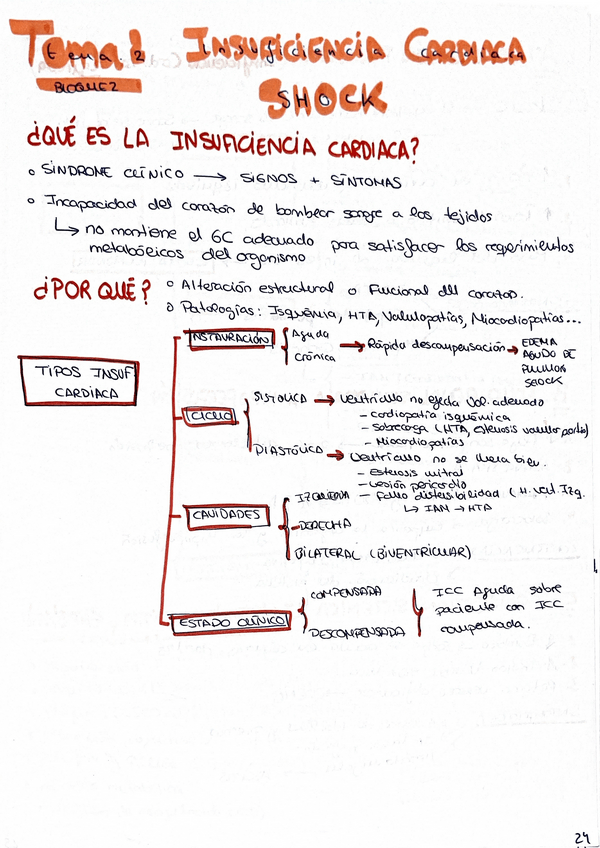 Tema 2 INSUFICIENCIA CARDIACA
BLOQUE 2
SHOCK
¿QUÉ ES LA INSUFICIENCIA CARDIACA?
o SINDROME CLÍNICO → SIGNOS + SÍNTOMAS
o Incapacidad del corazón de bombear sangre a los tejidos
↳ no mantiene el GC adecuado para satisfacer los requerimientos
metabólicos del organismo
¿POR QUÉ? o Alteración estructural o Funcional del corazón.
o Patologías: Isquemia, HTA, Valvulopatías, Miocardiopatías...
TIPOS INSUF
CARDIACA
INSTAURACIÓN
Aguda
Crónica
→ Rápida descompensación →
EDEMA
AGUDO DE
PULMÓN
SHOCK
CICLO
SISTOLICA → Ventriculo no eyecta Vol. adecuado
- cardiopatía isquémica
- Sobrecarga (HTA, estenosis valvular
- Miocardiopatías
DIASTÓLICA → Ventriculo no se llena bien.
- Estenosis mitral
- Lesión pericardio
- Fallo distensibilidad (H. Vent. Izq.
↳ IAM → HTA
CAVIDADES
IZQUIERDA
- DERECHA
BILATERAL (BIVENTRICULAR)
ESTADO CLÍNICO
COMPENSADA
DESCOMPENSADA
ICC Aguda sobre
paciente con ICC
compensada.
24